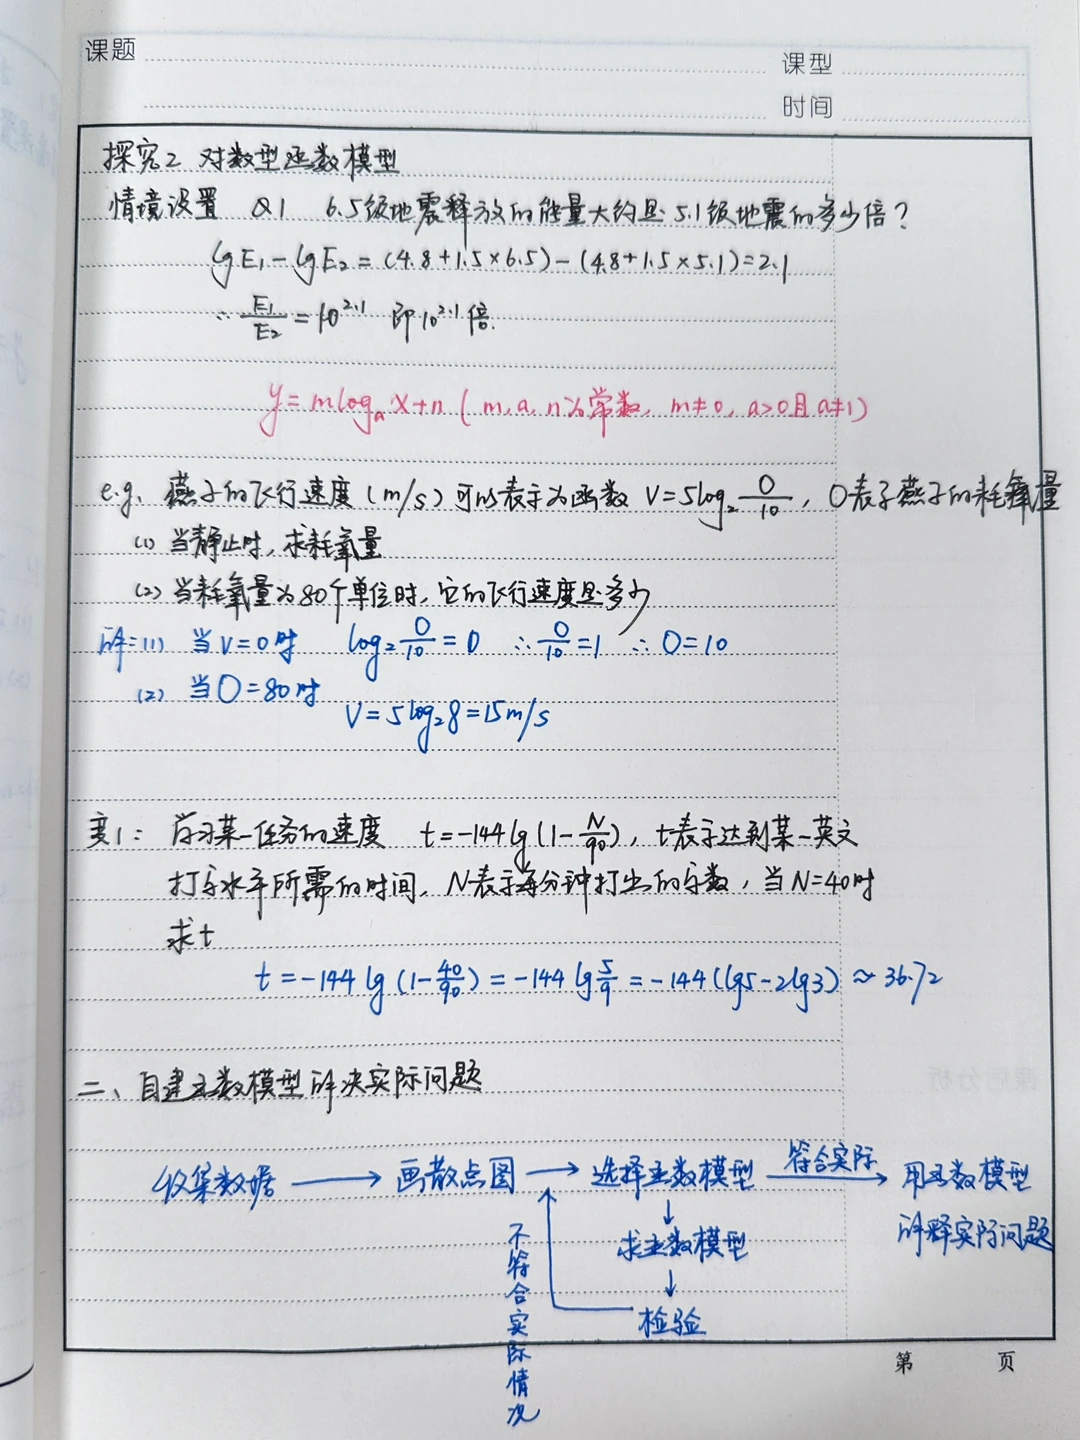 课题
课型
时间
探究2 对数型函数模型
情境设置 Q1 6.5级地震释放的能量大约是5.1级地震的多少倍?
lgE₁-lgE₂=(4.8+1.5×6.5)-(4.8+1.5×5.1)=2.1
∴ E₁/E₂=10^2.1 即10^2.1倍.
y=mlogₐx+n(m,a,n为常数,m≠0,a>0且a≠1)
e.g. 燕子的飞行速度(m/s)可以表示为函数 V=5log₂ O/10,O表示燕子的耗氧量
(1) 当静止时,求耗氧量
(2) 当耗氧量为80个单位时,它的飞行速度是多少
解=(1) 当V=0时 log₂ O/10=0 ∴ O/10=1 ∴ O=10
(2) 当O=80时
V=5log₂8=15m/s
变1: 学习某一任务的速度 t=-144lg(1-N/90),t表示达到某一英文
打字水平所需的时间,N表示每分钟打出的字数,当N=40时
求t
t=-144lg(1-40/90)=-144lg5/9=-144(lg5-2lg3)≈36.72
二、自建函数模型解决实际问题
收集数据 → 画散点图 → 选择函数模型 符合实际→ 用函数模型
解释实际问题
↓
求函数模型
↓
检验
不符合实际情况
课后分析
第 页